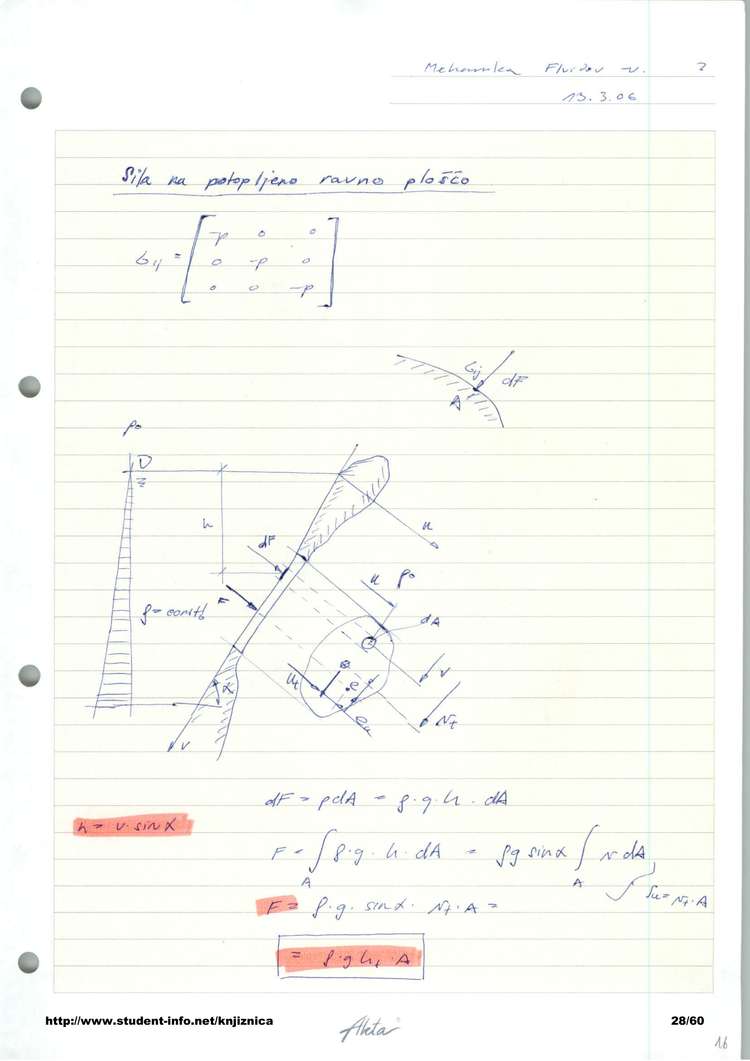 Mehanika Fluidov -v. 2
13.3.06
Sila na potopljeno ravno ploščo
σij = [ -p 0 0
0 -p 0
0 0 -p ]
σij dF
A
p₀
h
dF
u
F
ρ = const
u p₀
dA
v
α
v
dF = p dA = ρ·g·h·dA
h = v·sinα
F = ∫ ρ·g·h·dA = ρg sinα ∫ v dA
A A
Su = vt·A
F = ρ·g·sinα·vt·A =
= ρ·g ht·A
http://www.student-info.net/knjiznica
28/60
16